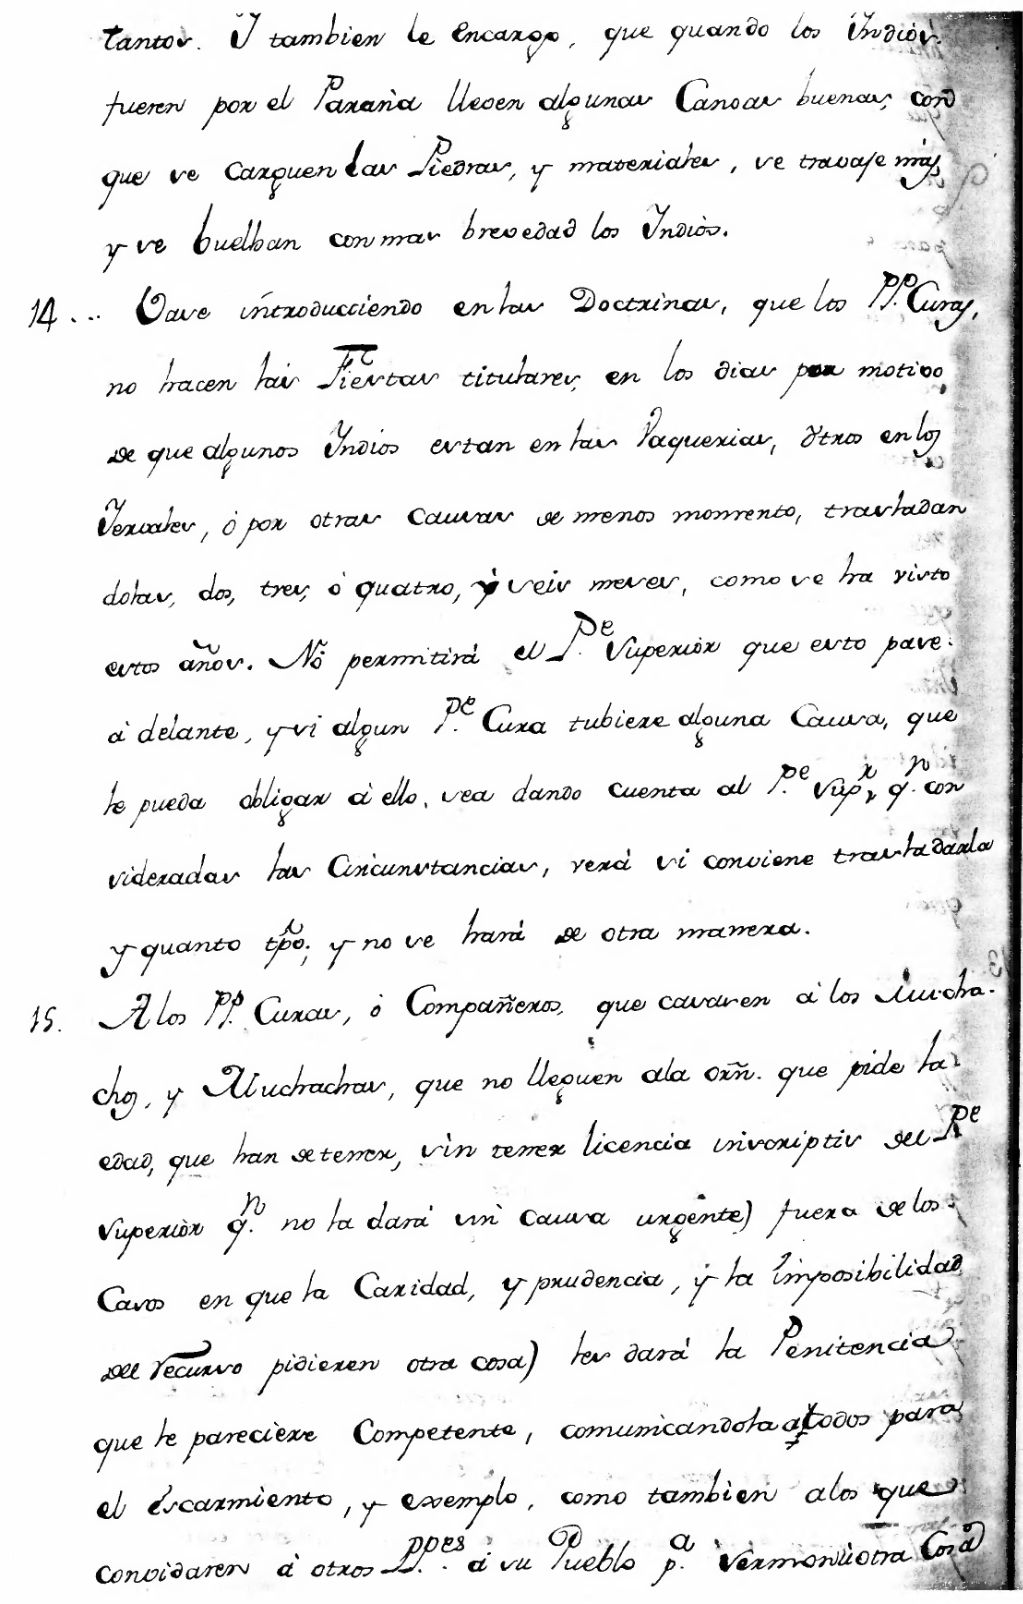 tantos. Y tambien le Encargo, que quando los Yndios.
fueren por el Paraña lleven algunas Canoas buenas, con
que se Carguen las Piedras, y materiales, se travaje más
y se buelban con mas brevedad los Yndios.
14... Vase introducciendo en las Doctrinas, que los PP.ᵉ Curas,
no hacen las Fiestas titulares, en los dias por motivo
de que algunos Yndios estan en las Vaquerias, Otros en los
Yervales, ó por otras Causas de menos momento, trasladan
dolas, dos, tres, ó quatro, y seis meses, como se ha visto
estos años. No permitirá el P.ᵉ Superior que esto pase.
á delante, y si algun P.ᵉ Cura tubiere alguna Causa, que
le pueda obligar á ello, sea dando cuenta al P.ᵉ Sup.ʳ q.ⁿ con
sideradas las Circunstancias, verá si conviene trasladarla
y quanto tpo; y no se hará de otra manera.
15. A los PP. Curas, ó Compañeros, que casaren á los Mucha-
chos, y Muchachas, que no lleguen ala orñ. que pide la
edad, que han de tener, sin tener licencia inscriptis del P.ᵉ
Superior q.ⁿ no la dará sin causa urgente) fuera de los
Casos en que la Caridad, y prudencia, y la imposibilidad
del recurso pidieren otra cosa) les dará la Penitencia
que le pareciere Competente, comunicandola a todos para
el escarmiento, y exemplo, como tambien a los que
convidaren á otros PP.ᵉˢ á su Pueblo p.ᵃ Sermon ú otra Cosa